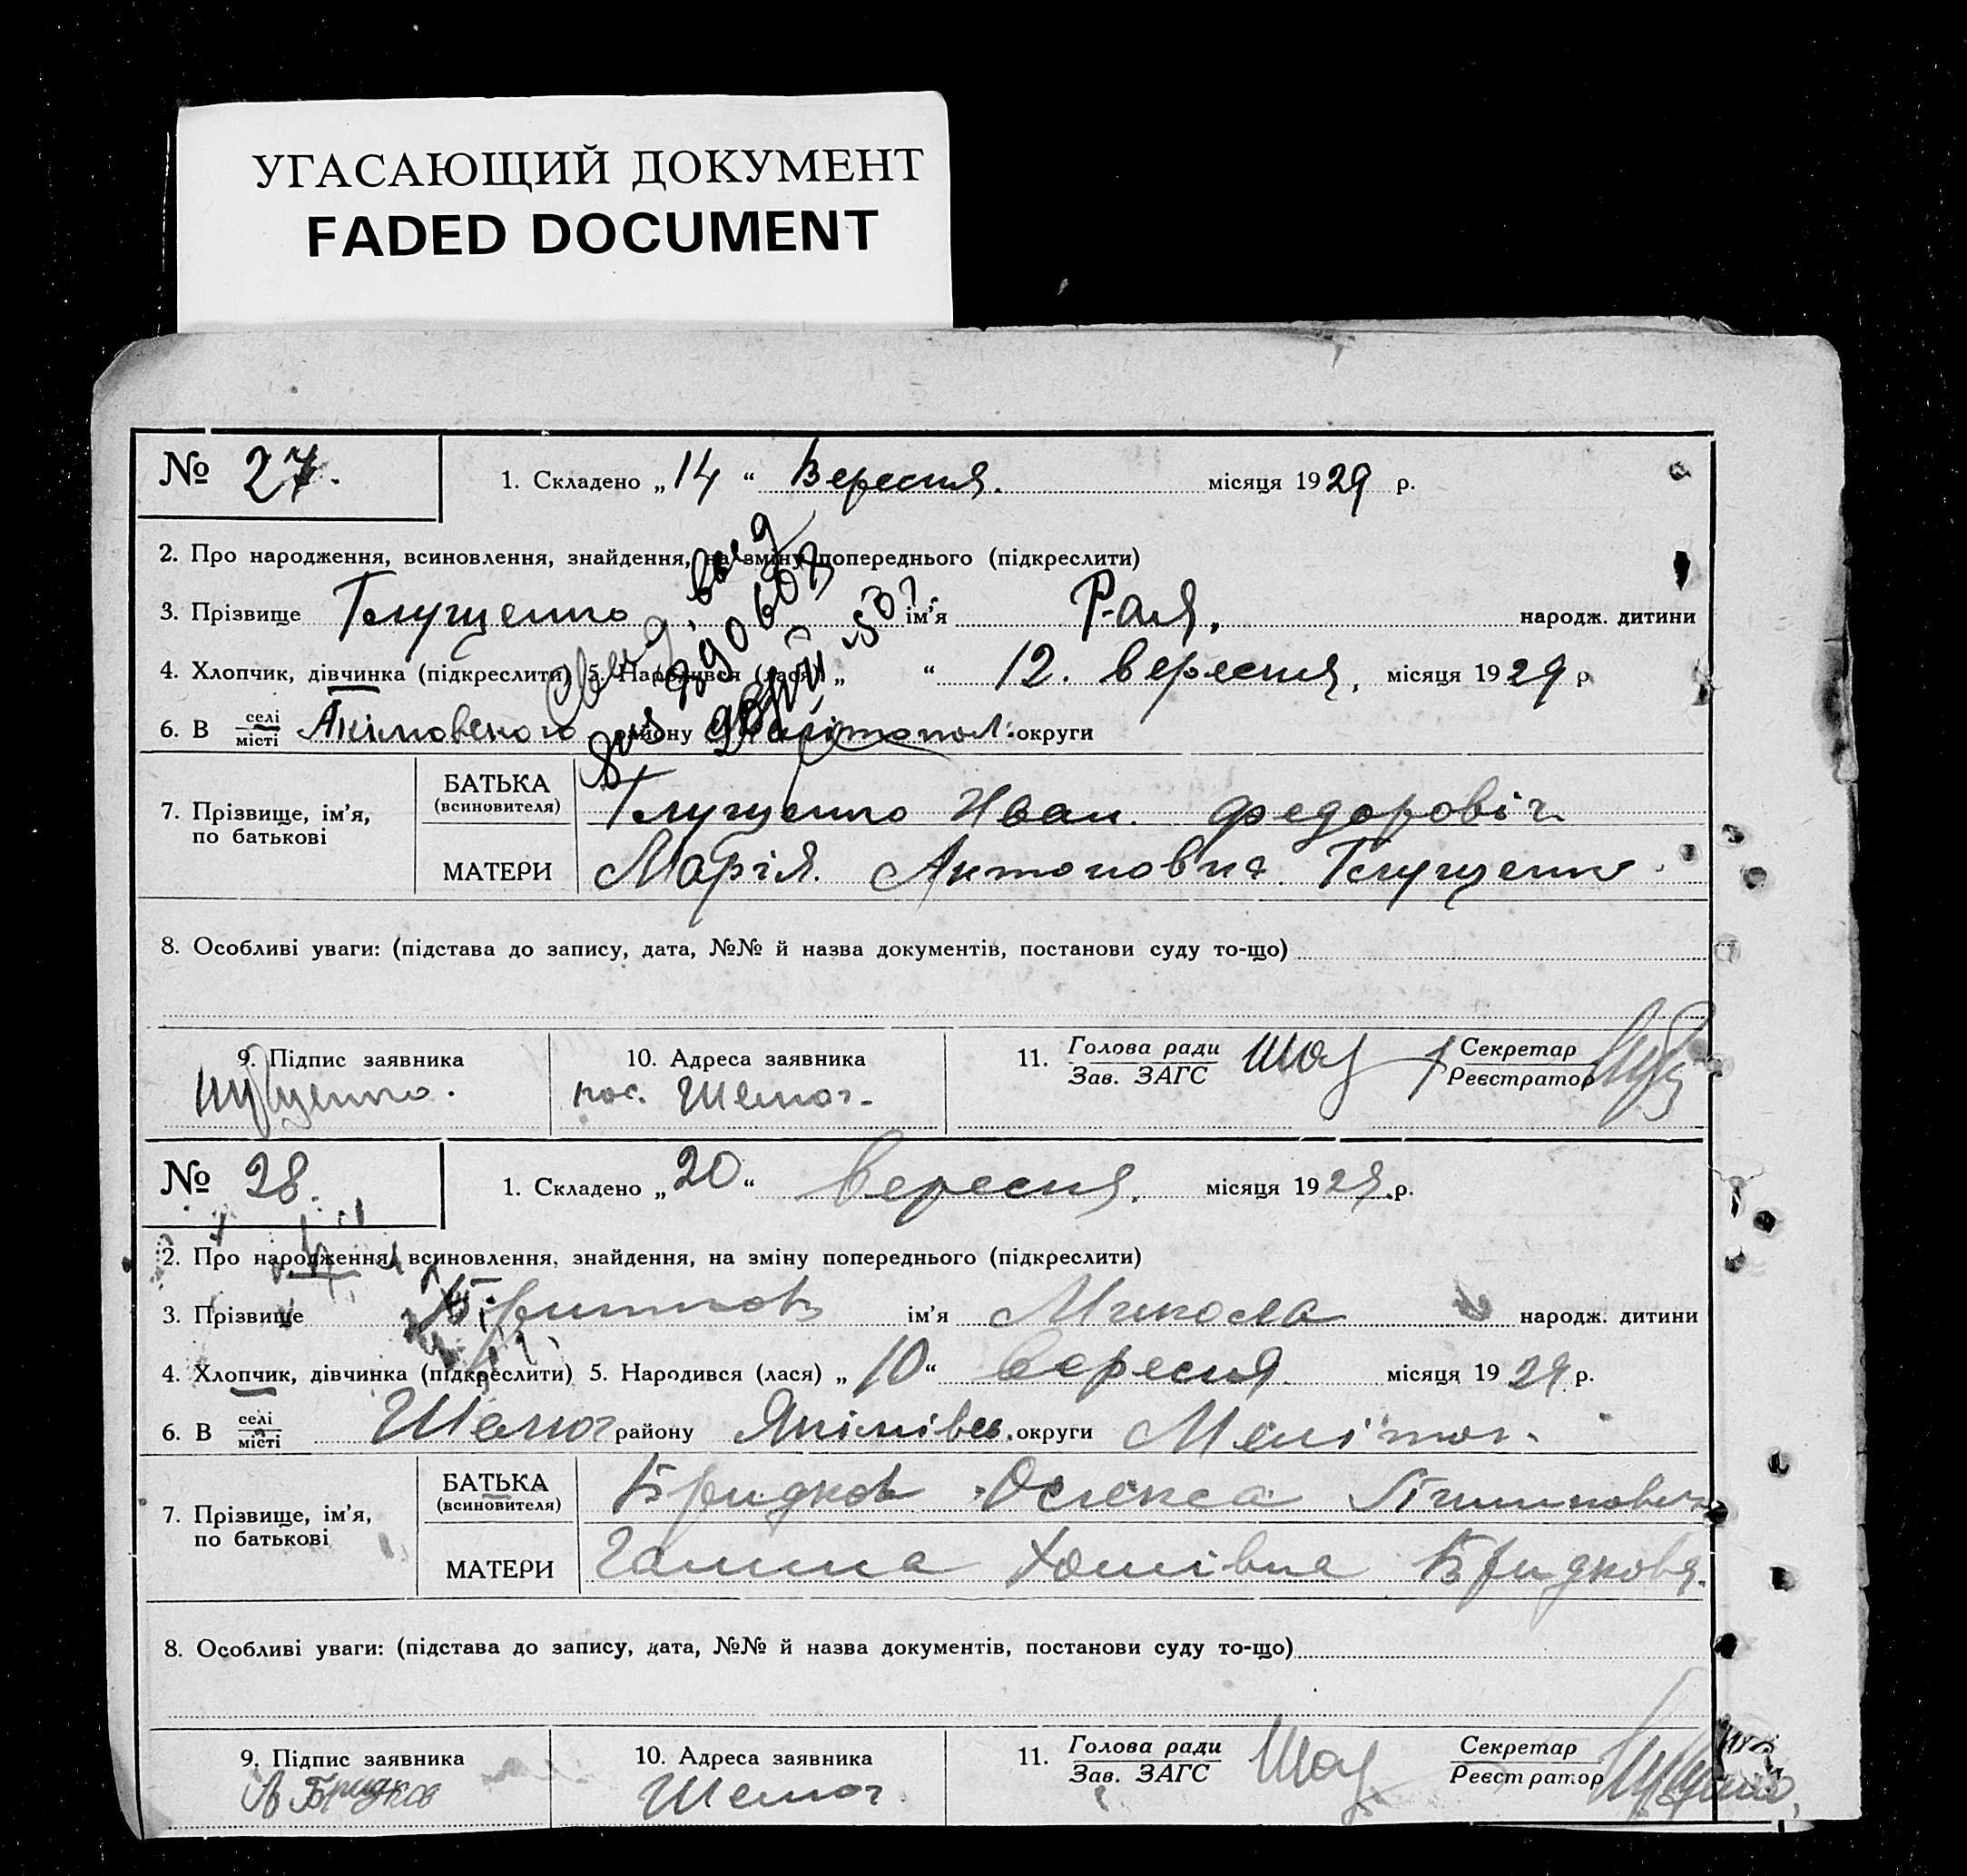 УГАСАЮЩИЙ ДОКУМЕНТ
FADED DOCUMENT
№ 27. 1. Складено „14“ Вересня. місяця 1929 р.
2. Про народження, всиновлення, знайдення, на зміну попереднього (підкреслити)
3. Прізвище Глущенко ім’я Рая, народж. дитини
4. Хлопчик, дівчинка (підкреслити) 5. Народився (лася) „ “ 12. вересня, місяця 1929 р
6. В селі місті Якімовского району Мелітопол. округи
7. Прізвище, ім’я, по батькові БАТЬКА (всиновителя) Глущенко Иван. Федоровіч
МАТЕРИ Марія. Антоновна. Глущенко
8. Особливі уваги: (підстава до запису, дата, №№ й назва документів, постанови суду то-що)
9. Підпис заявника 10. Адреса заявника 11. Голова ради Зав. ЗАГС Секретар Реєстратор
пос.
№ 28. 1. Складено „20“ вересня. місяця 1929.р.
2. Про народження, всиновлення, знайдення, на зміну попереднього (підкреслити)
3. Прізвище ім’я Микола народж. дитини
4. Хлопчик, дівчинка (підкреслити) 5. Народився (лася) „10“ вересня місяця 1929 р.
6. В селі місті району Якімівсь. округи Меліто
7. Прізвище, ім’я, по батькові БАТЬКА (всиновителя) Бридков Олекса
МАТЕРИ Галина Хомівна Бридкова.
8. Особливі уваги: (підстава до запису, дата, №№ й назва документів, постанови суду то-що)
9. Підпис заявника 10. Адреса заявника 11. Голова ради Зав. ЗАГС Секретар Реєстратор
А Бридков